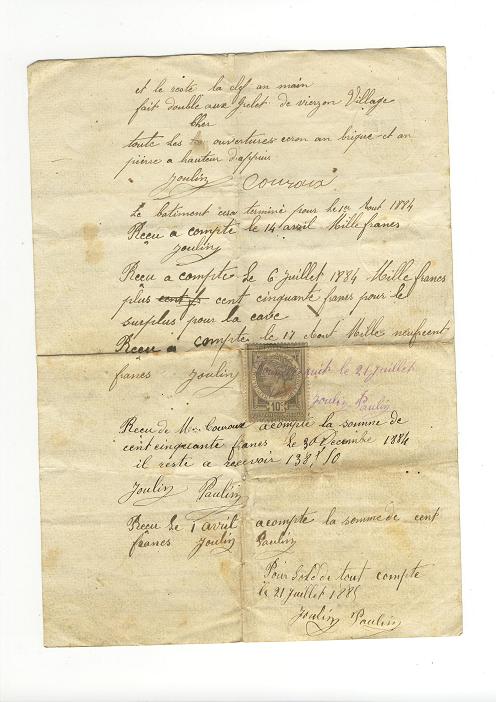 et le reste la clef an main
fait double aux Grelet de vierzon Village
Cher
toute les ouvertures ceron an brique et an
pierre a hauteur d'appui
Joulin Couroux
Le batiment cera terminé pour le 1er Aout 1884
Reçu a compte le 14 avril Mille francs
Joulin
Reçu a compte Le 6 Juillet 1884 Mille francs
plus cent cinquante francs pour le
surplus pour la cave
Reçu a compte le 17 Aout Mille neufcent
francs Joulin
le 21 Juillet
Joulin Paulin
10
Recu de Mr Couroux acompte la somme de
cent cinquante francs le 30 Decembre 1884
il reste a recevoir 138f 10
Joulin Paulin
Recu le 1 avril acompte la somme de cent
francs Joulin Paulin
Pour Solde de tout compte
le 21 Juillet 1885
Joulin Paulin